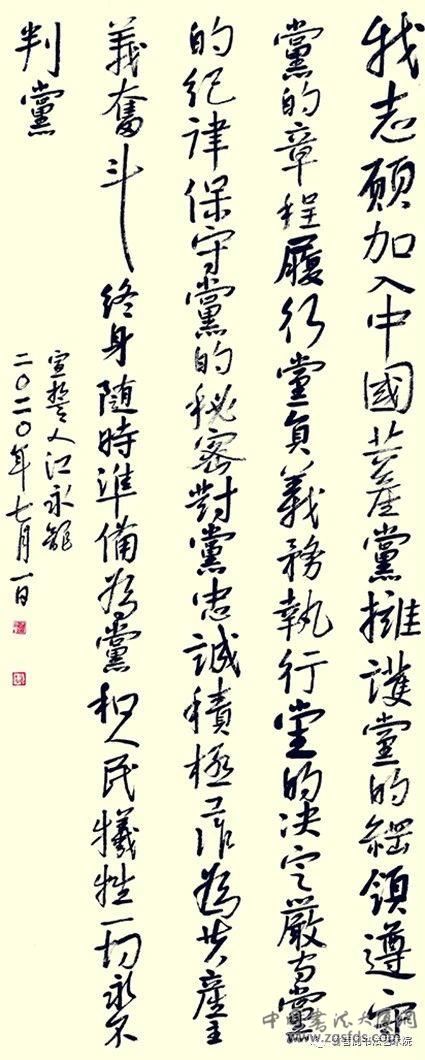 我志願加入中國共產黨擁護黨的綱領遵守
黨的章程履行黨員義務執行黨的決定嚴守黨
的紀律保守黨的秘密對黨忠誠積極工作為共產主
義奮斗終身隨時準備為黨和人民犧牲一切永不
判黨
宣誓人江永龍
二〇二〇年七月一日
中国书法大厦网
www.zgsfds.com